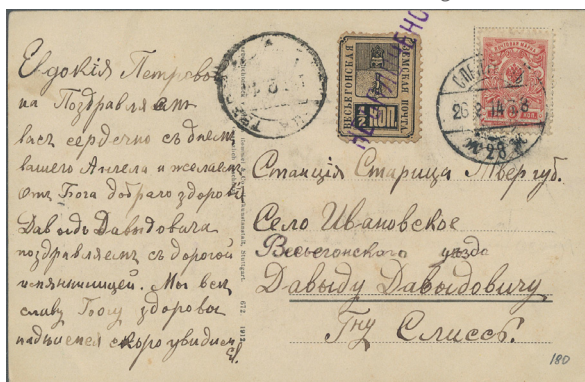 Евдокія Петровна
на Поздравляемъ
васъ сердечно съ днемъ
вашего Ангела и желаемъ
отъ Бога добраго здоровія
Давыдъ Давыдовича
поздравляемъ съ дорогой
имянинницей. Мы всѣ
славу Богу здоровы
надѣиемся скоро увидим
ВЕСЬЕГОНСКАЯ
ЗЕМСКАЯ ПОЧТА
1/2 КОП.
26 2 14
Станція Старица Твер. губ.
Село Ивановское
Весьегонскаго уезда
Давыду Давыдовичу
Гну Слиссъ.
Stuttgart. 672 1912
180